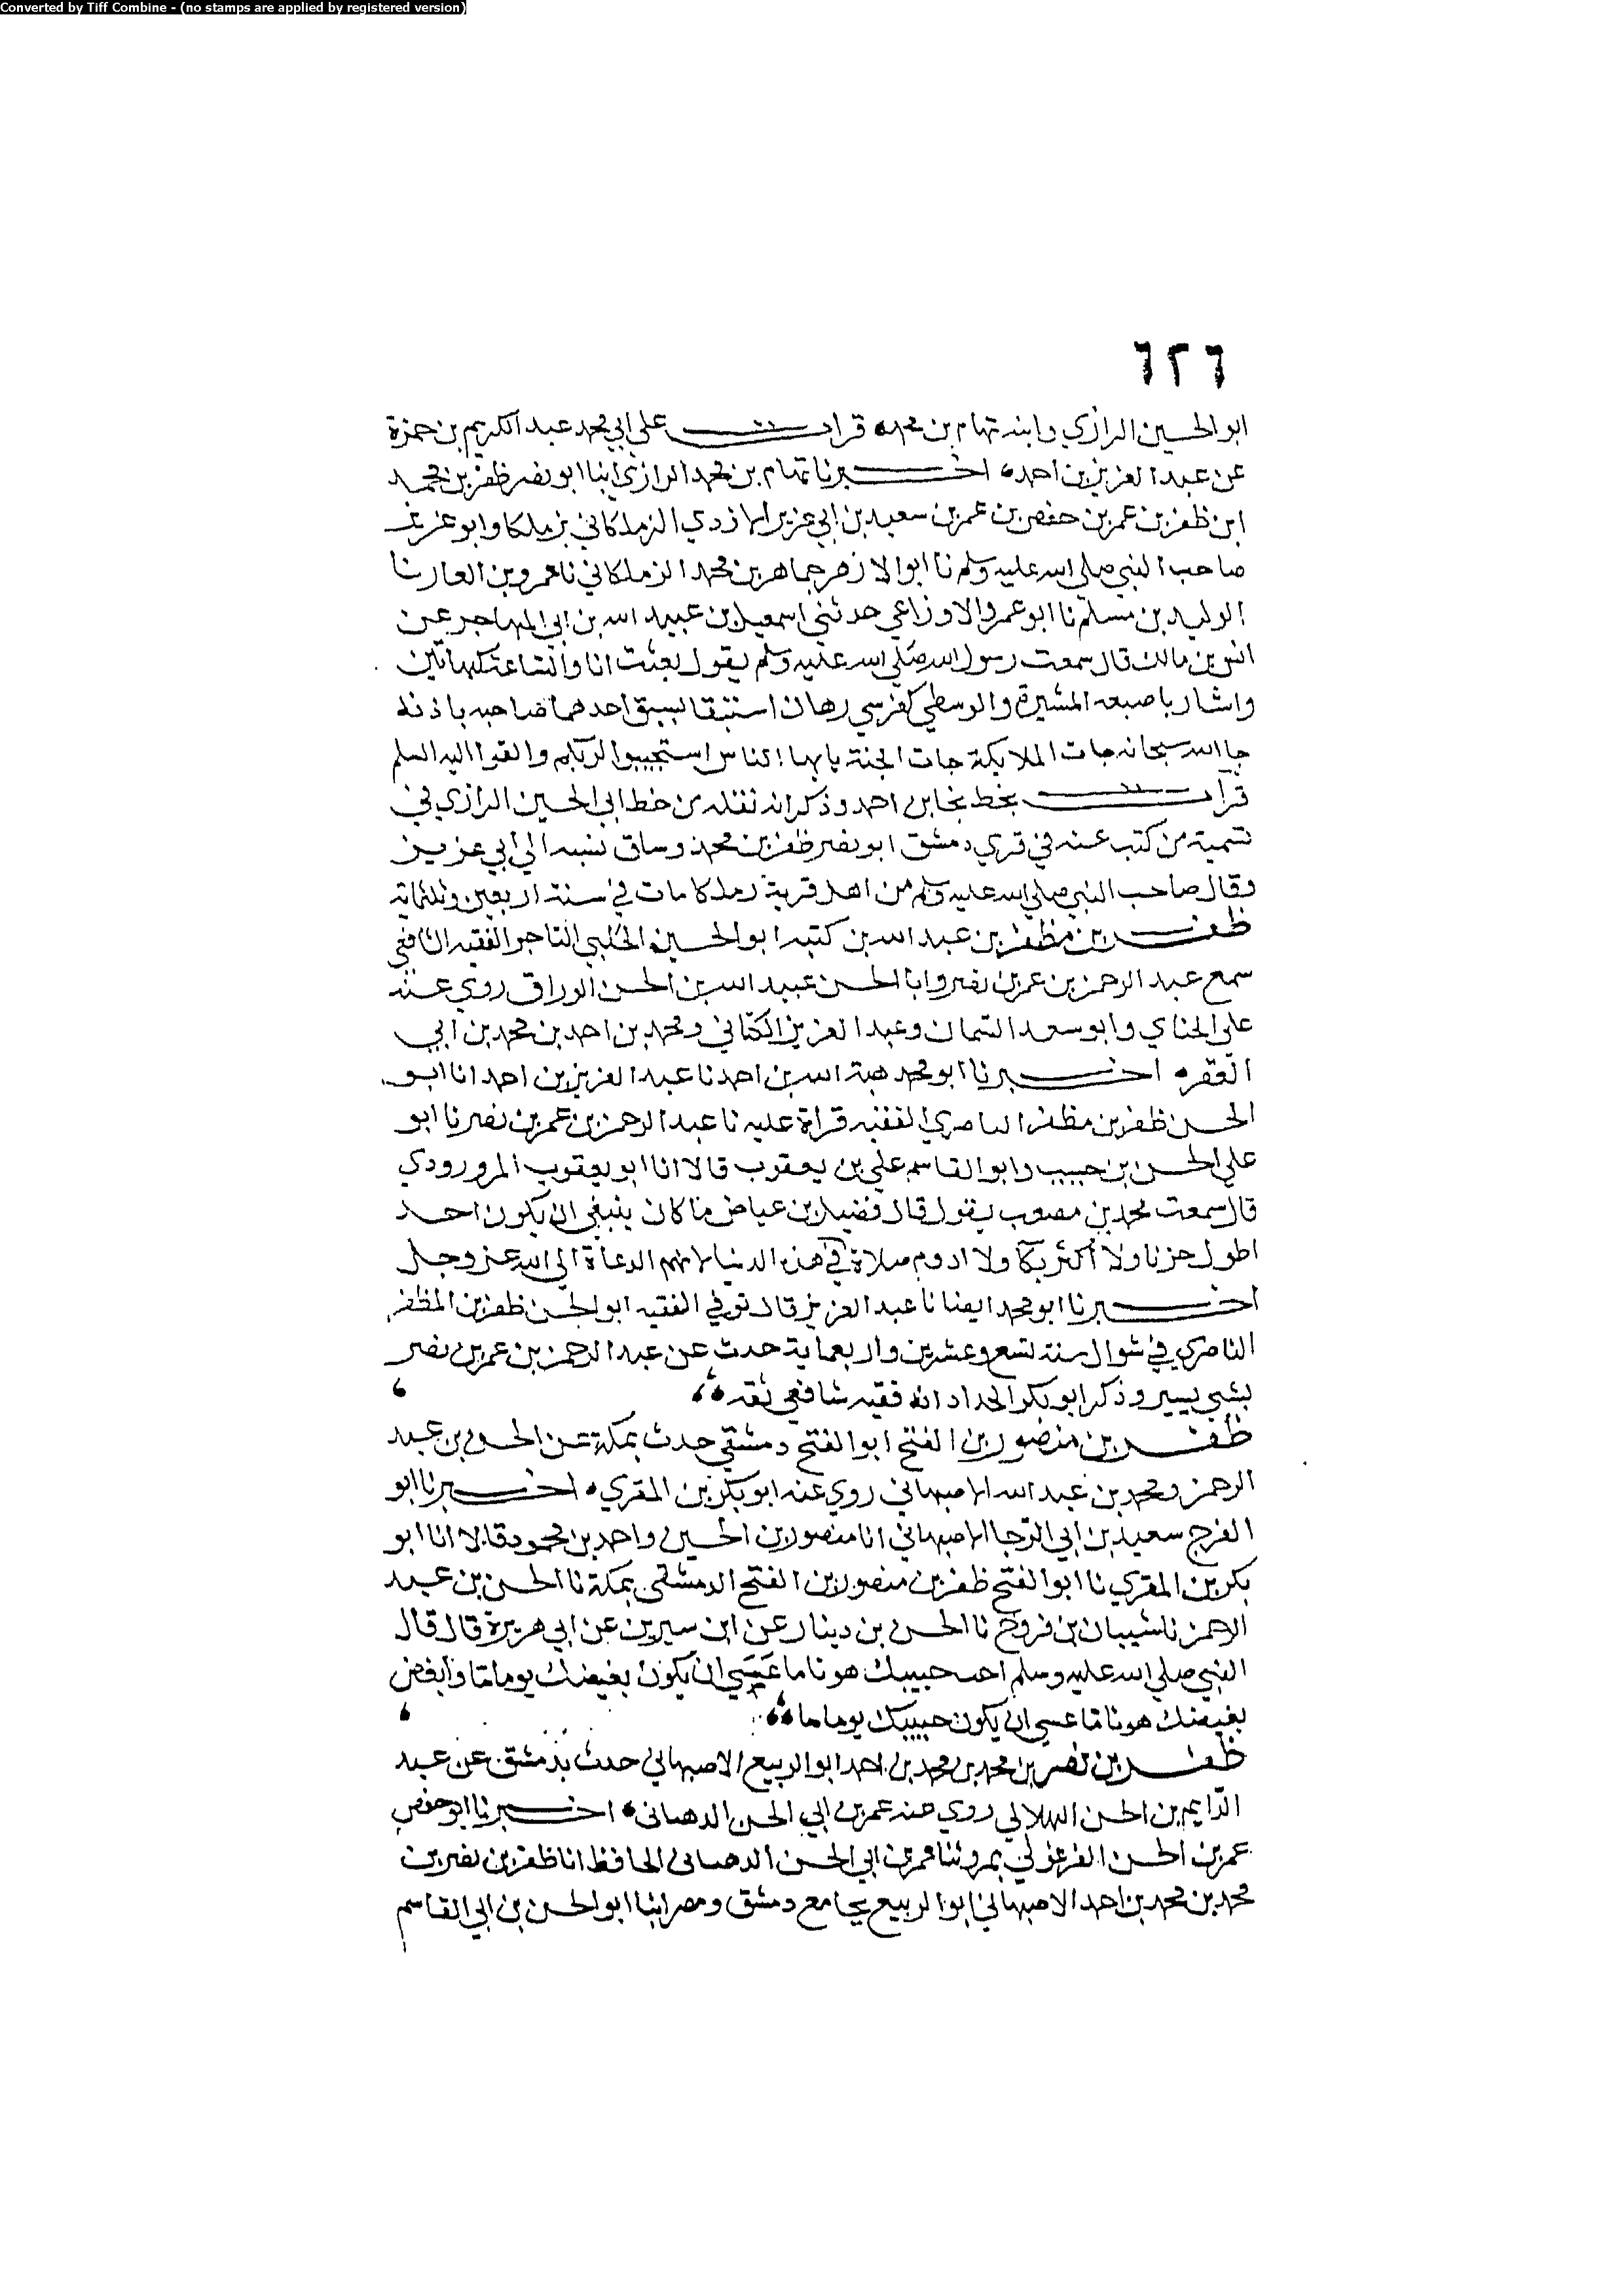 Converted by Tiff Combine - (no stamps are applied by registered version)
٦٢٦
ابو الحسين الرازي وابنه تمام بن محمد قرات على ابي محمد عبد الكريم بن حمزة
عن عبد العزيز بن احمد اخبرنا تمام بن محمد الرازي انبا ابو نصر ظفر بن محمد
ابن ظفر بن عمر بن حفص بن عمر بن سعيد بن ابي عزيز الازدي الزملكاني بزملكا وابو عزيز
صاحب النبي صلى الله عليه وسلم نا ابو الازهر جماهر بن محمد الزملكاني نا عمرو بن الغاز نا
الوليد بن مسلم نا ابو عمرو الاوزاعي حدثني اسمعيل بن عبيد الله بن ابي المهاجر عن
انس بن مالك قال سمعت رسول الله صلي الله عليه وسلم يقول بعثت انا والساعة كهاتين
واشار باصبعه المشيرة والوسطي كفرسي رهان استبقا يسبق احدهما صاحبه باذنه
جا الله سبحانه جات الملايكة جات الجنة يايها الناس استجيبوا لربكم والقوا اليه السلم
قرات بخط نجا بن احمد وذكر انه نقله من خط ابي الحسين الرازي في
تسمية من كتب عنه في قري دمشق ابو نصر ظفر بن محمد وساق نسبه الي ابي عزيز
وقال صاحب النبي صلي الله عليه وسلم من اهل قرية زملكا مات في سنة اربعين وثلثماية
ظفر بن مظفر بن عبد الله بن كتبه ابو الحسين الحلبي التاجر الفقيه الشافعي
سمع عبد الرحمن بن عمر بن نصر وابا الحسن عبيد الله بن الحسن الوراق روي عنه
علي الحناي وابو سعد السمان وعبد العزيز الكتاني ومحمد بن احمد بن محمد بن ابي
الصقر اخبرنا ابو محمد هبة الله بن احمد نا عبد العزيز بن احمد انا ابو
الحسن ظفر بن مظفر الناصري الفقيه قراة عليه نا عبد الرحمن بن عمر بن نصر نا ابو
علي الحسن بن حبيب وابو القاسم علي بن يعقوب قالا انا ابو يعقوب المرورودي
قال سمعت محمد بن مصعب يقول قال فضيل بن عياض ما كان ينبغي ان يكون احد
اطول حزنا ولا اكثر بكا ولا ادوم صلاة في هذه الدنيا لانهم الدعاة الي الله عز وجل
اخبرنا ابو محمد ايضا نا عبد العزيز قال توفي الفقيه ابو الحسن ظفر بن المظفر
الناصري في شوال سنة تسع وعشرين واربعماية حدث عن عبد الرحمن بن عمر بن نصر
بشي يسير وذكر ابو بكر الحداد انه فقيه شافعي ثقه
ظفر بن منصور بن الفتح ابو الفتح دمشقي حدث بمكة عن الحسن بن عبد
الرحمن ومحمد بن عبد الله الاصبهاني روي عنه ابو بكر بن المقري اخبرنا ابو
الفرج سعيد بن ابي الرجا الاصبهاني انا منصور بن الحسين واحمد بن محمود قالا انا ابو
بكر بن المقري نا ابو الفتح ظفر بن منصور بن الفتح الدمشقي بمكة نا الحسن بن عبد
الرحمن نا شيبان بن فروخ نا الحسن بن دينار عن ابن سيرين عن ابي هريرة قال قال
النبي صلي الله عليه وسلم احب حبيبك هونا ما عسي ان يكون بغيضك يوما ما وابغض
بغيضك هونا ما عسي ان يكون حبيبك يوما ما
ظفر بن نصر بن محمد بن محمد بن احمد ابو الربيع الاصبهاني حدث بدمشق عن عبد
الدايم بن الحسن الهلالي روي عنه عمر بن ابي الحسن الدهستاني اخبرنا ابو حفص
عمر بن الحسن الفرغولي بمرو ثنا عمر بن ابي الحسن الدهستاني الحافظ انا ظفر بن نصر بن
محمد بن محمد بن احمد الاصبهاني ابو الربيع بجامع دمشق ومصر انبا ابو الحسن بن ابي القاسم